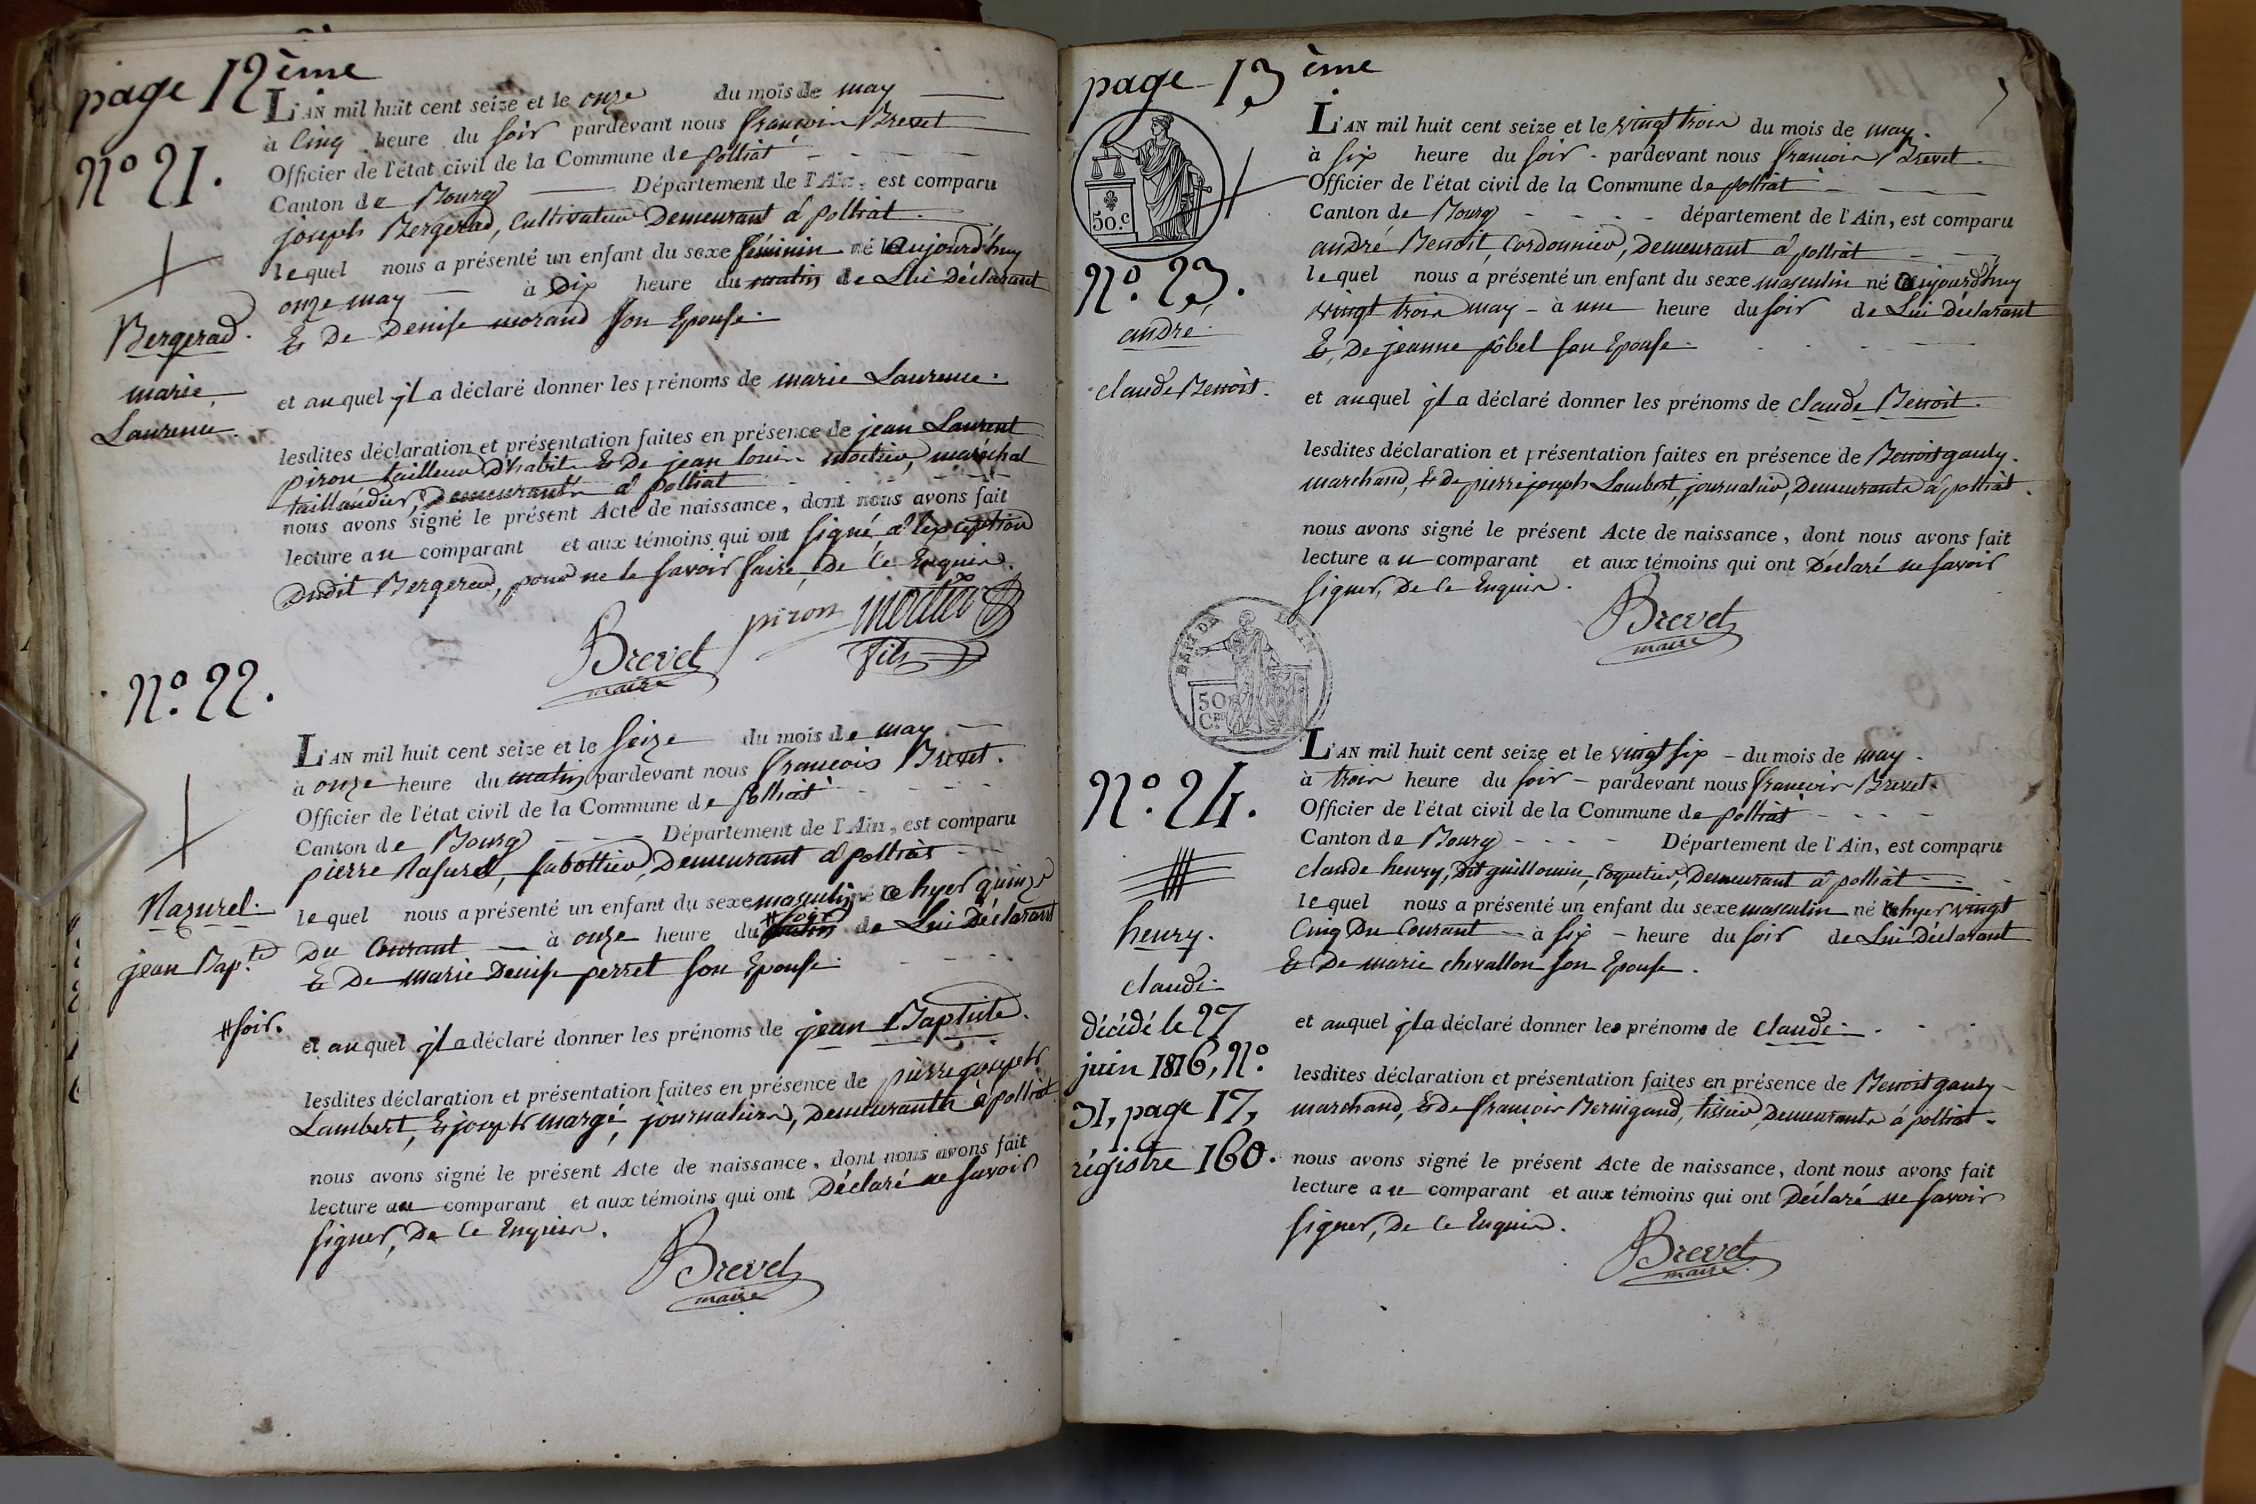 page 12ème
L'AN mil huit cent seize et le onze du mois de may
à Cinq heure du soir pardevant nous françois Brevet
Officier de l'état civil de la Commune de polliat
Canton de Bourg Département de l'Ain, est comparu
joseph Bergerad, Cultivateur Demeurant à polliat
lequel nous a présenté un enfant du sexe féminin né aujourd'huy
onze may à Dix heure du matin de Lui Déclarant
& De Denise morand son Epouse.
et auquel jl a déclaré donner les prénoms de marie Laurence.
lesdites déclaration et présentation faites en présence de jean Laurent
piron tailleur D'habits & De jean louis mortier, maréchal
taillandier, Demeurants à polliat
nous avons signé le présent Acte de naissance, dont nous avons fait
lecture au comparant et aux témoins qui ont signé à l'exception
Dudit Bergerad, pour ne le savoir faire, De Ce Enquis.
Brevet maire piron mortier fils
N° 21.
Bergerad.
marie
Laurence
N° 22.
L'AN mil huit cent seize et le seize du mois de may
à onze heure du matin pardevant nous françois Brevet.
Officier de l'état civil de la Commune de polliat
Canton de Bourg Département de l'Ain, est comparu
pierre Nasurel, sabottier, Demeurant à polliat
lequel nous a présenté un enfant du sexe masculin né hyer quinze
Du Courant à onze heure du #soir matin de Lui Déclarant
& De marie Denise perret son Epouse.
et auquel jl a déclaré donner les prénoms de jean Baptiste.
lesdites déclaration et présentation faites en présence de pierre joseph
Lambert, & joseph margé, journaliers, Demeurants à polliat.
nous avons signé le présent Acte de naissance, dont nous avons fait
lecture au comparant et aux témoins qui ont Déclaré ne savoir
signer, De Ce Enquis.
Brevet
maire
Nazurel.
jean Bapte
#soir.
page 13ème
50.c
L'AN mil huit cent seize et le vingt trois du mois de may.
à six heure du soir pardevant nous françois Brevet
Officier de l'état civil de la Commune de polliat
Canton de Bourg département de l'Ain, est comparu
andré Benoit, Cordonnier, Demeurant à polliat
lequel nous a présenté un enfant du sexe masculin né aujourd'huy
vingt trois may à une heure du soir de Lui Déclarant
& De jeanne pôbel son Epouse.
et auquel jl a déclaré donner les prénoms de claude Benoit.
lesdites déclaration et présentation faites en présence de Benoit gauly.
marchand, & de pierre joseph Lambert, journalier, Demeurants à polliat.
nous avons signé le présent Acte de naissance, dont nous avons fait
lecture au comparant et aux témoins qui ont Déclaré ne savoir
signer, De Ce Enquis.
Brevet
maire
N°. 23.
andré.
claude Benoit.
50
Cmes
L'AN mil huit cent seize et le vingt six du mois de may.
à trois heure du soir pardevant nous françois Brevet.
Officier de l'état civil de la Commune de polliat
Canton de Bourg Département de l'Ain, est comparu
claude henry, Dit guillomin, Coquetier, Demeurant à polliat
lequel nous a présenté un enfant du sexe masculin né hyer vingt
Cinq Du Courant à six heure du soir de Lui Déclarant
& De marie chevallon son Epouse.
et auquel jl a déclaré donner les prénoms de claude.
lesdites déclaration et présentation faites en présence de Benoit gauly
marchand, & De françois Bernigaud, tissier, Demeurants à polliat
nous avons signé le présent Acte de naissance, dont nous avons fait
lecture au comparant et aux témoins qui ont Déclaré ne savoir
signer, De Ce Enquis.
Brevet
maire.
N°. 24.
henry.
claude.
décédé le 27
juin 1816, N°.
31, page 17,
régistre 160.